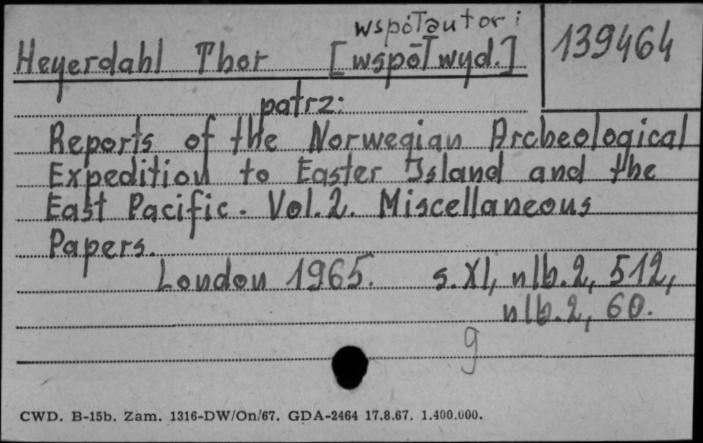 współautor i
Heyerdahl Thor [współwyd.] 139464
patrz:
Reports of the Norwegian Archeological
Expedition to Easter Island and the
East Pacific. Vol. 2. Miscellaneous
Papers.
London 1965. s. XI, nlb. 2, 512,
nlb. 2, 60.
g
CWD. B-15b. Zam. 1316-DW/On/67. GDA-2464 17.8.67. 1.400.000.